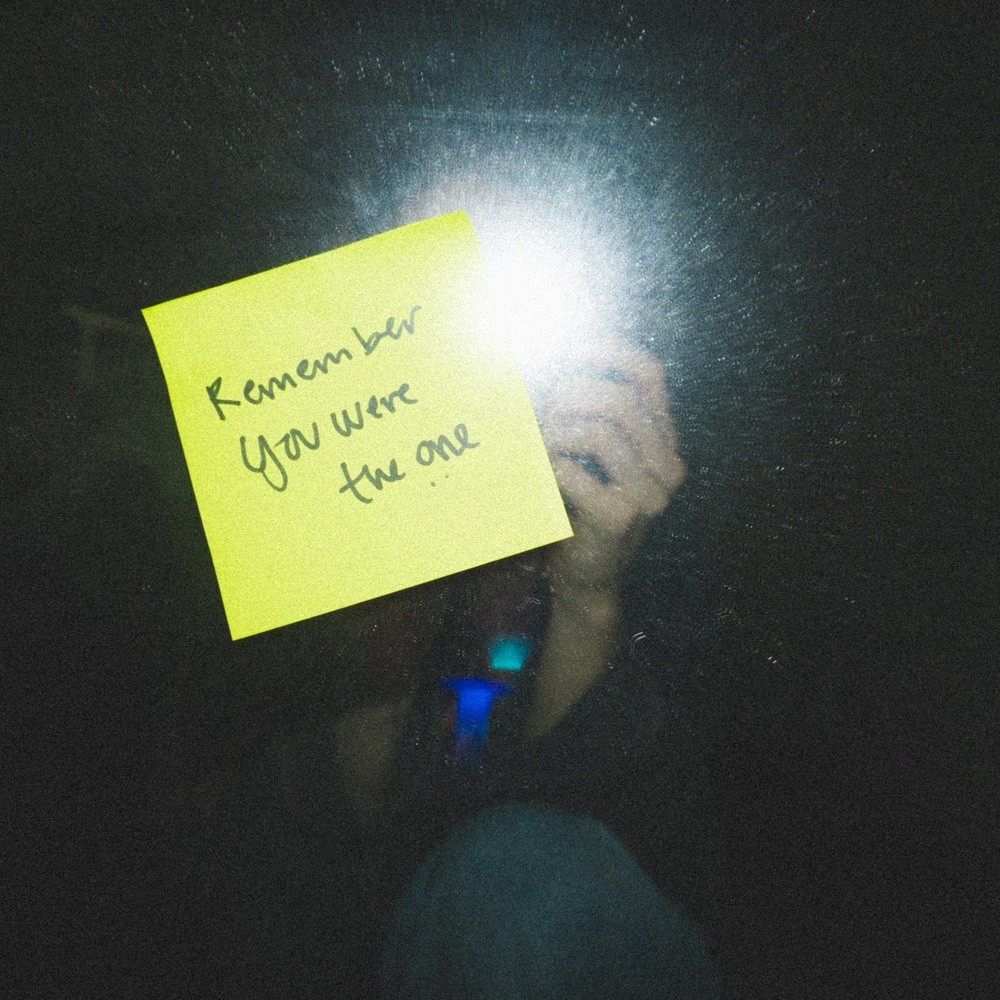 Remember
you were
the one